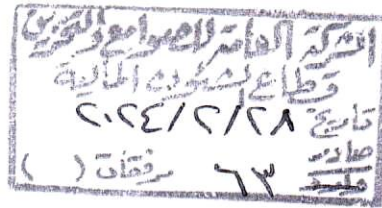 الشركة العامة للصوامع والتخزين
قطاع الشئون المالية
تاريخ ٢٠٢٤/٢/٢٨
صادر
وارد ٦٣ مرفقات ( )